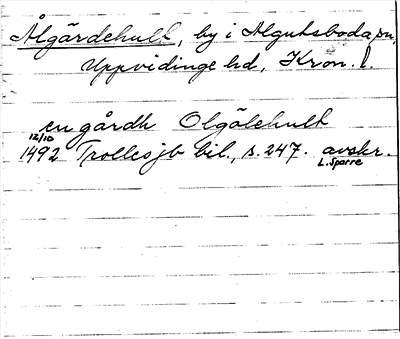 Ålgärdehult, by i Algutsboda sn,
Uppvidinge hd, Kron. l.
en gårdh Olgölehult
12/10
1492 Trollesjb bil., s. 247. avskr.
L. Sparre